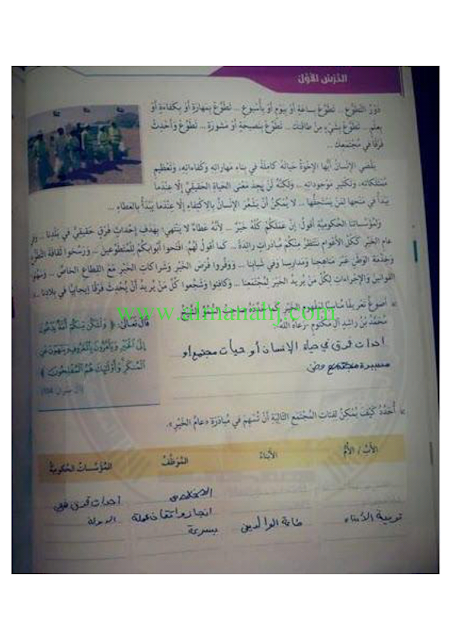 الدرس الأول
دَوْرُ التَّطَوُّعِ ... تَطَوَّعْ بِساعَةٍ أَوْ بِيَوْمٍ أَوْ بِأُسْبوعٍ ... تَطَوَّعْ بِمَهارَةٍ أَوْ بِكَفاءَةٍ أَوْ
بِعِلْمٍ ... تَطَوَّعْ بِشَيْءٍ مِنْ طاقَتِكَ ... تَطَوَّعْ بِنَصيحَةٍ أَوْ مَشورَةٍ ... تَطَوَّعْ وَأَحْدِثْ
فَرْقًا في مُجْتَمَعِكَ ...
يَقْضي الإِنْسانُ أَيُّها الإِخْوَةُ حَياتَهُ كامِلَةً في بِناءِ مَهاراتِهِ وَكَفاءاتِهِ، وَتَعْظيمِ
مُمْتَلَكاتِهِ، وَتَكْبيرِ مَوْجوداتِهِ ... وَلكِنَّهُ لَنْ يَجِدَ مَعْنى الحَياةِ الحَقيقِيَّ إِلّا عِنْدَما
يَبْدَأُ في مَنْحِها لِمَنْ يَسْتَحِقُّها ... لا يُمْكِنُ أَنْ يَشْعُرَ الإِنْسانُ بِالاكْتِفاءِ إِلّا عِنْدَما يَبْدَأُ بِالعَطاءِ ...
وَلِمُؤَسَّساتِنا الحُكومِيَّةِ أَقولُ: إِنَّ عَمَلَكُمْ كُلَّهُ خَيْرٌ ... لِأَنَّهُ عَطاءٌ لا يَنْتَهي؛ بِهَدَفِ إِحْداثِ فَرْقٍ حَقيقِيٍّ في بَلَدِنا ... وَفي
عامِ الخَيْرِ كَكُلِّ الأَعْوامِ نَنْتَظِرُ مِنْكُمْ مُبادَراتٍ رائِدَةً ... كَما أَقولُ لَهُمْ: افْتَحوا أَبْوابَكُمْ لِلْمُتَطَوِّعينَ ... وَرَسِّخوا ثَقافَةَ التَّطَوُّعِ
وَخِدْمَةِ الوَطَنِ عَبْرَ مَناهِجِنا وَمَدارِسِنا وَفي شَبابِنا ... وَوَفِّروا فُرَصَ الخَيْرِ وَشَراكاتِ الخَيْرِ مَعَ القِطاعِ الخاصِّ ... وَسَهِّلوا
القَوانينَ وَالإِجْراءاتِ لِكُلِّ مَنْ يُريدُ الخَيْرَ لِمُجْتَمَعِنا ... وَكافِئوا وَشَجِّعوا كُلَّ مَنْ يُريدُ أَنْ يُحْدِثَ فَرْقًا إيجابِيًّا في بِلادِنا ...
www.almanahj.com
أَصوغُ تَعْريفًا مُناسِبًا لِمَفْهومِ الخَيْرِ كَما حَدَّدَهُ صاحِبُ السُّمُوِّ الشَّيْخُ
مُحَمَّدُ بْنُ راشِدٍ آلُ مَكْتومٍ -رَعاهُ اللهُ-
احداث فرق في حياة الانسان أو حياة مجتمع أو
مسيرة وطن
قالَ تَعالى: ﴿ وَلْتَكُن مِّنكُمْ أُمَّةٌ يَدْعُونَ
إِلَى الْخَيْرِ وَيَأْمُرُونَ بِالْمَعْرُوفِ وَيَنْهَوْنَ عَنِ
الْمُنكَرِ وَأُولَئِكَ هُمُ الْمُفْلِحُونَ ﴾
(آل عمران 104)
أُحَدِّدُ كَيْفَ يُمْكِنُ لِفِئاتِ المُجْتَمَعِ التّالِيَةِ أَنْ تُسْهِمَ في مُبادَرَةِ «عامُ الخَيْرِ».
الأَبُ / الأُمُّ
الأَبْناءُ
المُوَظَّفُ
المُؤَسَّساتُ الحُكومِيَّةُ
تربية الأبناء
طاعة الوالدين
انجاز
بسرعة
احداث فرق في
الدولة